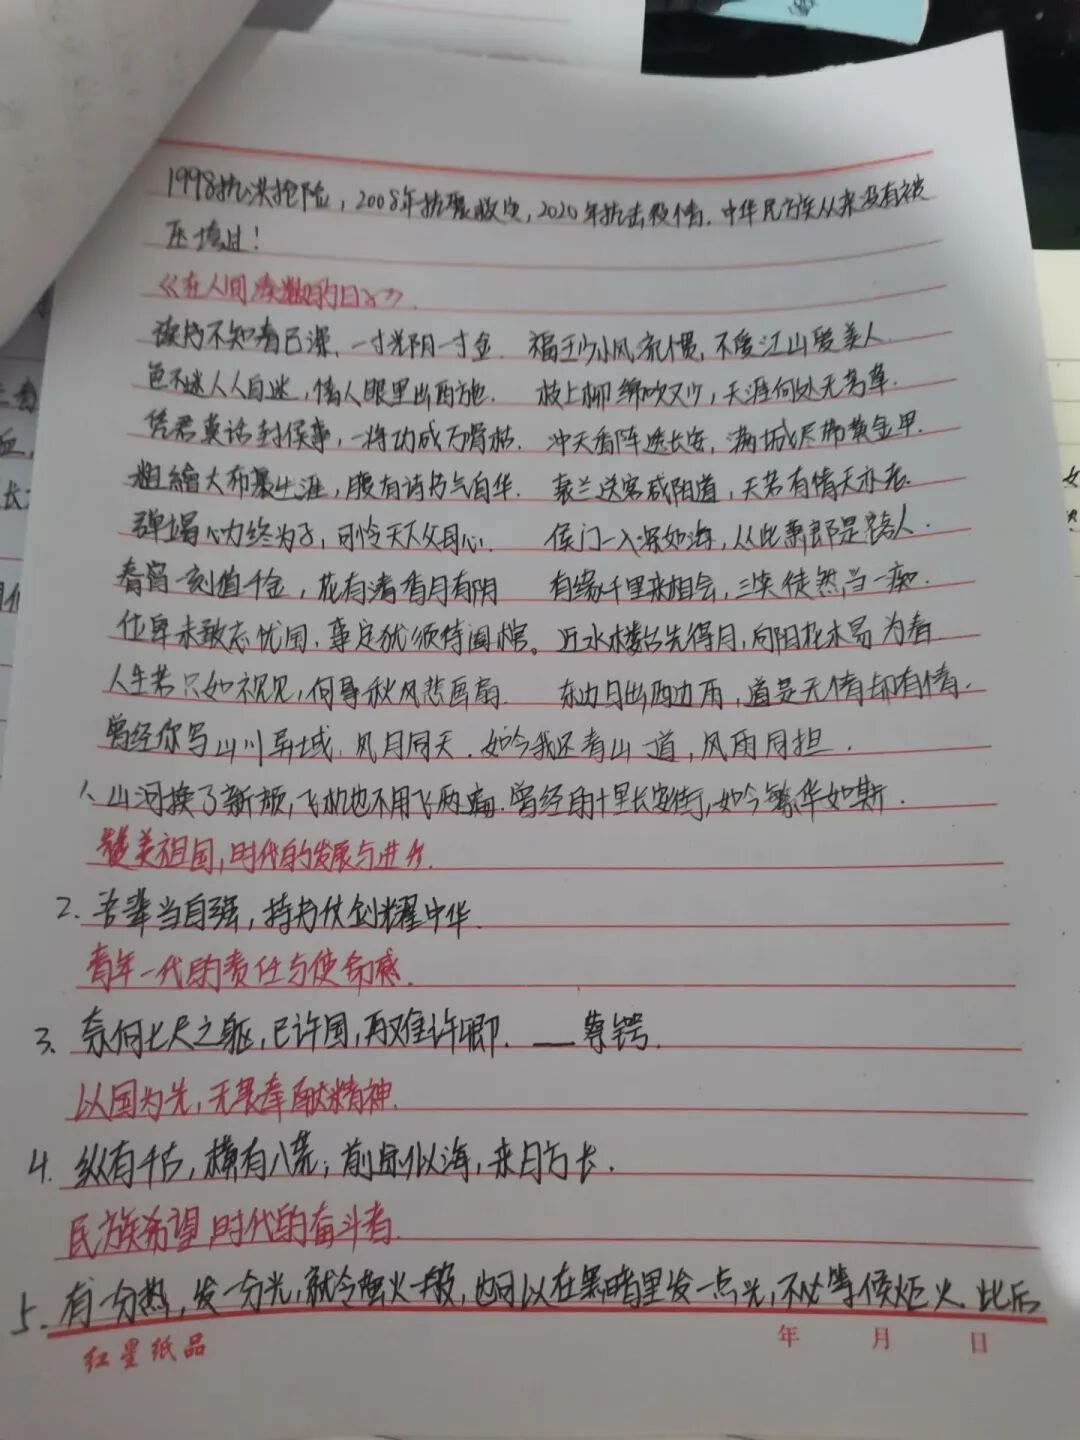 1998抗洪抢险，2008年抗震救灾，2020年抗击疫情．中华民族从来没有被
压垮过！
《在人间凑数的日子》
读书不知春已深，一寸光阴一寸金 福王少小风流惯，不爱江山爱美人
色不迷人人自迷，情人眼里出西施． 枝上柳绵吹又少，天涯何处无芳草．
凭君莫话封侯事，一将功成万骨枯． 冲天香阵透长安，满城尽带黄金甲．
粗缯大布裹生涯，腹有诗书气自华． 衰兰送客咸阳道，天若有情天亦老．
弹竭心力终为子，可怜天下父母心． 侯门一入深如海，从此萧郎是路人．
春宵一刻值千金，花有清香月有阴 有缘千里来相会，三笑徒然当一痴．
位卑未敢忘忧国，事定犹须待阖棺。 近水楼台先得月，向阳花木易为春
人生若只如初见，何事秋风悲画扇． 东边日出西边雨，道是无情却有情．
曾经你写山川异域，风月同天．如今我还青山一道，风雨同担．
1、山河换了新颜，飞机也不用飞两遍．曾经的十里长安街，如今繁华如斯．
赞美祖国，时代的发展与进步．
2．吾辈当自强，持书仗剑耀中华．
青年一代的责任与使命感．
3．奈何七尺之躯，已许国，再难许卿．——尊锷．
以国为先，无畏奉献精神．
4．纵有千古，横有八荒；前途似海，来日方长．
民族希望，时代的奋斗者．
5．有一分热，发一分光，就令萤火一般，也可以在黑暗里发一点光，不必等候炬火．此后
红星纸品 年 月 日